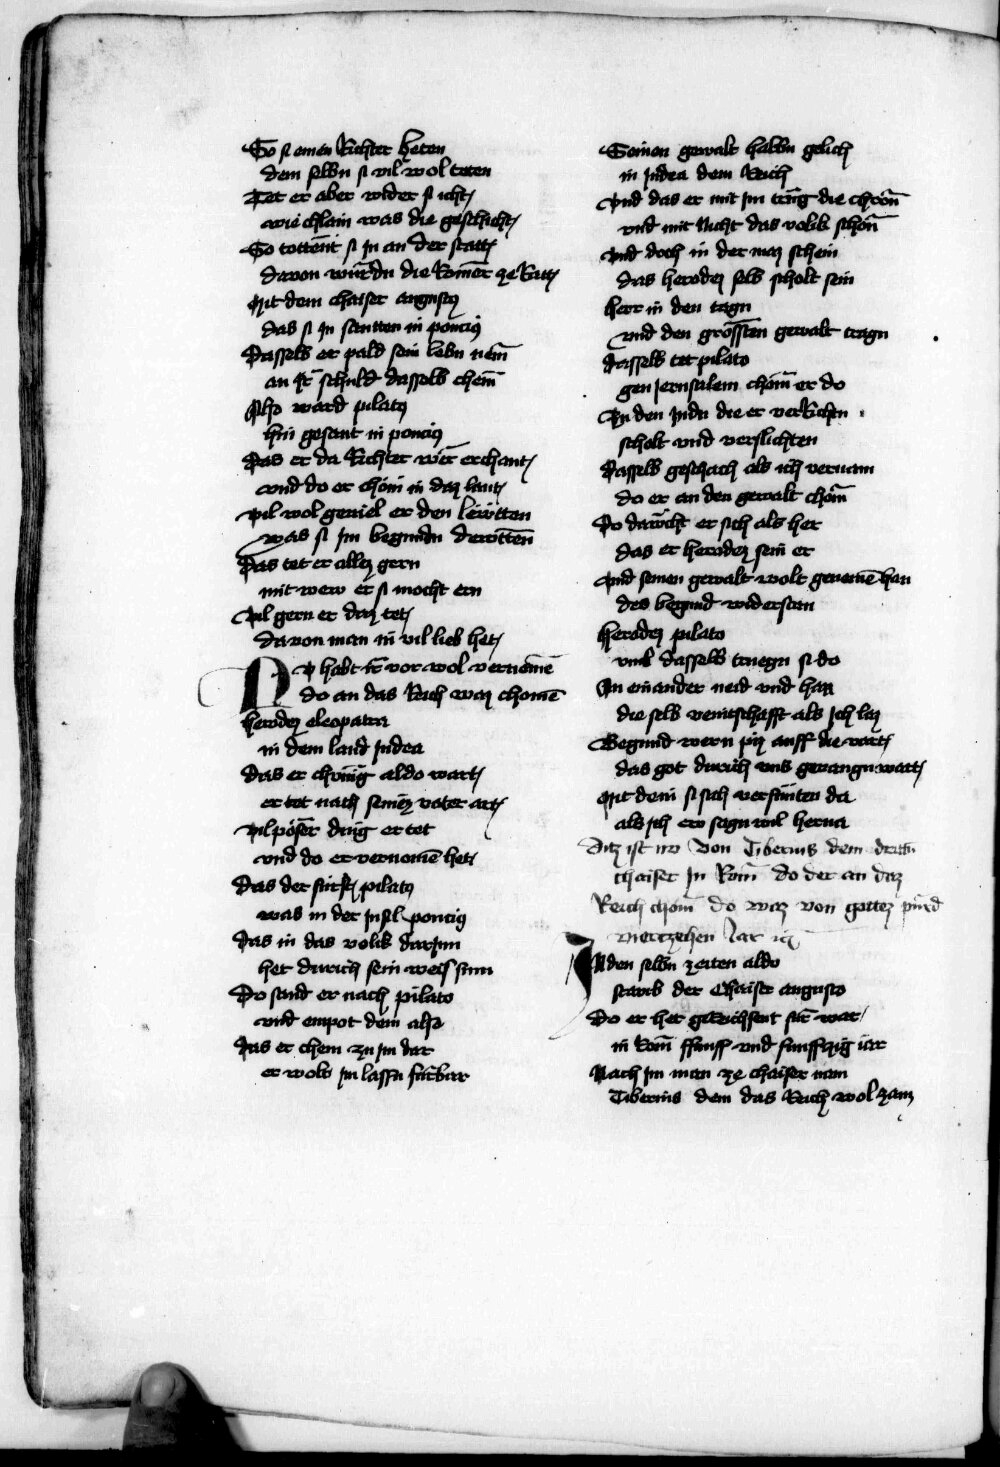 So si einen Richter heten
dem selbn si vil wol teten
Tet er aber wider si icht
wie chlain was die geschicht
So tottent si in an der statt
davon wurdn die Romer ze Ratt
Mit dem chaiser augustz
das si in santten in ponciz
Dasselb er pald sein lebn nem
an ir schuld dasselb chem
Also ward pilatz
hin gesant in ponciz
Das er da Richter wer erchant
und do er chom in daz lant
Vil wol geviel er den lewtten
was si im begundn dewtten
Das tet er allez gern
mit wew er si mocht ern
Vil gern er daz tet
davon man in vil lieb het
Nu habt ir vor wol vernomen
do an das Reich waz chomen
herodez cleopatra
in dem land Judea
das er chunig aldo wart
er tet nach seinez vater art
Vil poser ding er tet
und do er vernomen het
Das der furst pilatz
was in der Insl ponciz
Das in das volik darinn
het durich sein weis sinn
Do sand er nach pilato
und enpot dem also
Das er chem zu im dar
er wolt im lassn furbar
Seinen gewalt habbn gelich
in Judea dem Reich
Und das er mit im trug die chron
und mit Richt das volik schon
Und doch in der maz schein
das herodez selb scholt sein
herr in den tagn
und den grossten gewalt tragn
Dasselb tet pilato
gen Jerusalem chom er do
Zu den Judn die er verRichtn
scholt und verslichten
Dasselb geschach als ich vernam
do er an den gewalt chom
Do dawcht er sich als her
das er herodez sein er
Und seinen gewalt wolt genomen han
des begund widerstan
herodez pilato
umb dasselb truegn si do
An einander neid und haz
die selb veintschafft als ich laz
Begund wern piz auff die vart
das got durich uns gevangn wart
Mit dem si sich versunten da
als ich ew sagn wil herna
Ditz ist nw von Tiberius dem drittn
chaiser in Rom do der an daz
Reich chom do waz von gottez purd
viertzehen Jar
In den selbn zeiten aldo
starb der Chaiser augusto
Do er het geReichsent fur war
in Rom funff und funffzig iar
Nach im man ze chaiser nam
Tiberius dem das Reich wol zam